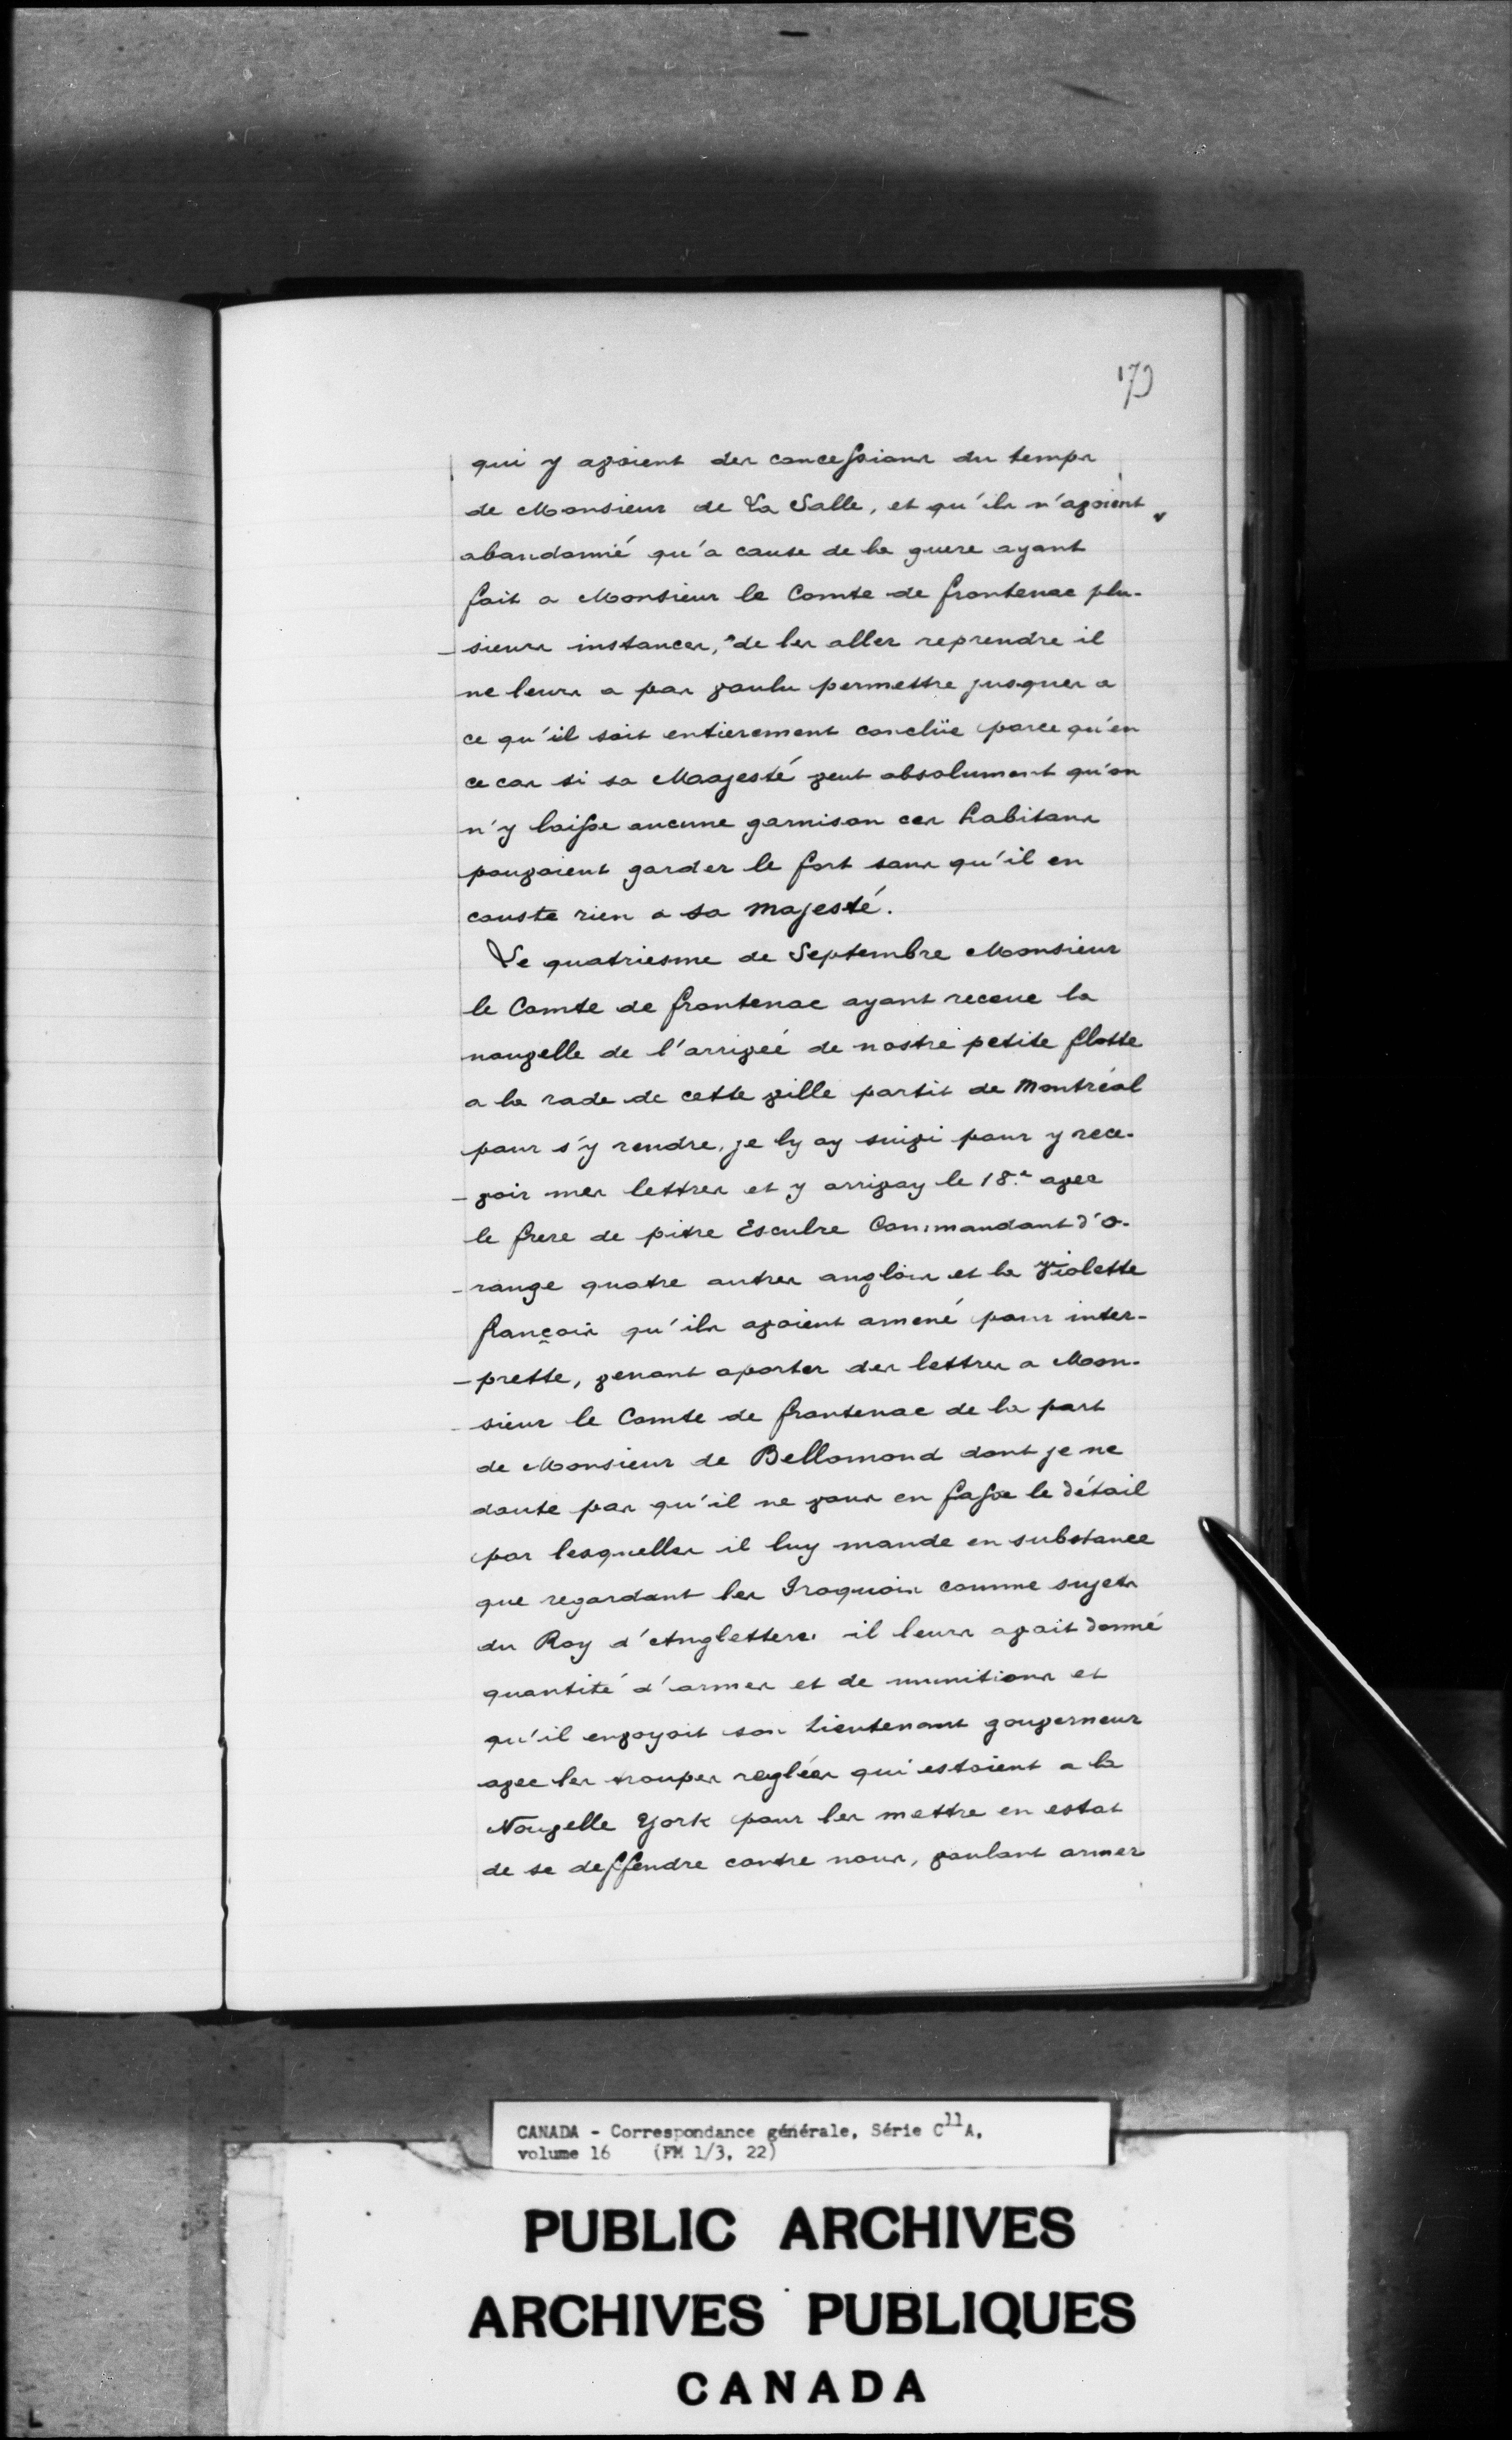 173
qui y avoient des concessions du temps
de Monsieur de La Salle, et qu'ils n'avoient
abandonné qu'a cause de la guere ayant
fait a Monsieur le Comte de frontenac plu-
-sieurs instances, de les aller reprendre il
ne leurs a pas voulu permettre jusques a
ce qu'il soit entierement conclüe parce qu'en
ce cas si sa Maajesté veut absolument qu'on
n'y laisse aucune garnison ces habitans
pouvoient garder le fort sans qu'il en
couste rien a sa Majesté.
Le quatriesme de Septembre Monsieur
le Comte de frontenac ayant receue la
nouvelle de l'arrivéé de nostre petite flotte
a la rade de cette ville partit de Montréal
pour s'y rendre, je ly ay suivi pour y rece-
-voir mes lettres et y arrivay le 18.e avec
le frere de pitre Esculre Commandant d'o-
-range quatre autres anglois et la Violette
françois qu'ils avoient amené pour inter-
-prette, venant aporter des lettres a Mon-
-sieur le Comte de frontenac de la part
de Monsieur de Bellomond dont je ne
doute pas qu'il ne vous en fasse le détail
par lesquelles il luy mande en substance
que regardant les Iroquois comme sujets
du Roy d'Anglettere. il leurs avoit donné
quantité d'armes et de munitions et
qu'il envoyoit son Lieutenant gouverneur
avec les troupes regléés qui estoient a la
Nouvelle York pour les mettre en estat
de se deffendre contre nous, voulant armer
CANADA - Correspondance générale, Série C11A,
volume 16 (FM 1/3, 22)
PUBLIC ARCHIVES
ARCHIVES PUBLIQUES
CANADA
L